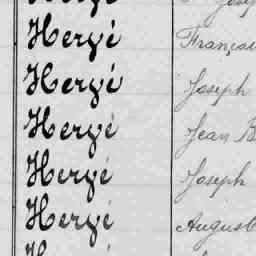 Hergé Françoi
Hergé Joseph
Hergé Jean B
Hergé Joseph
Hergé August